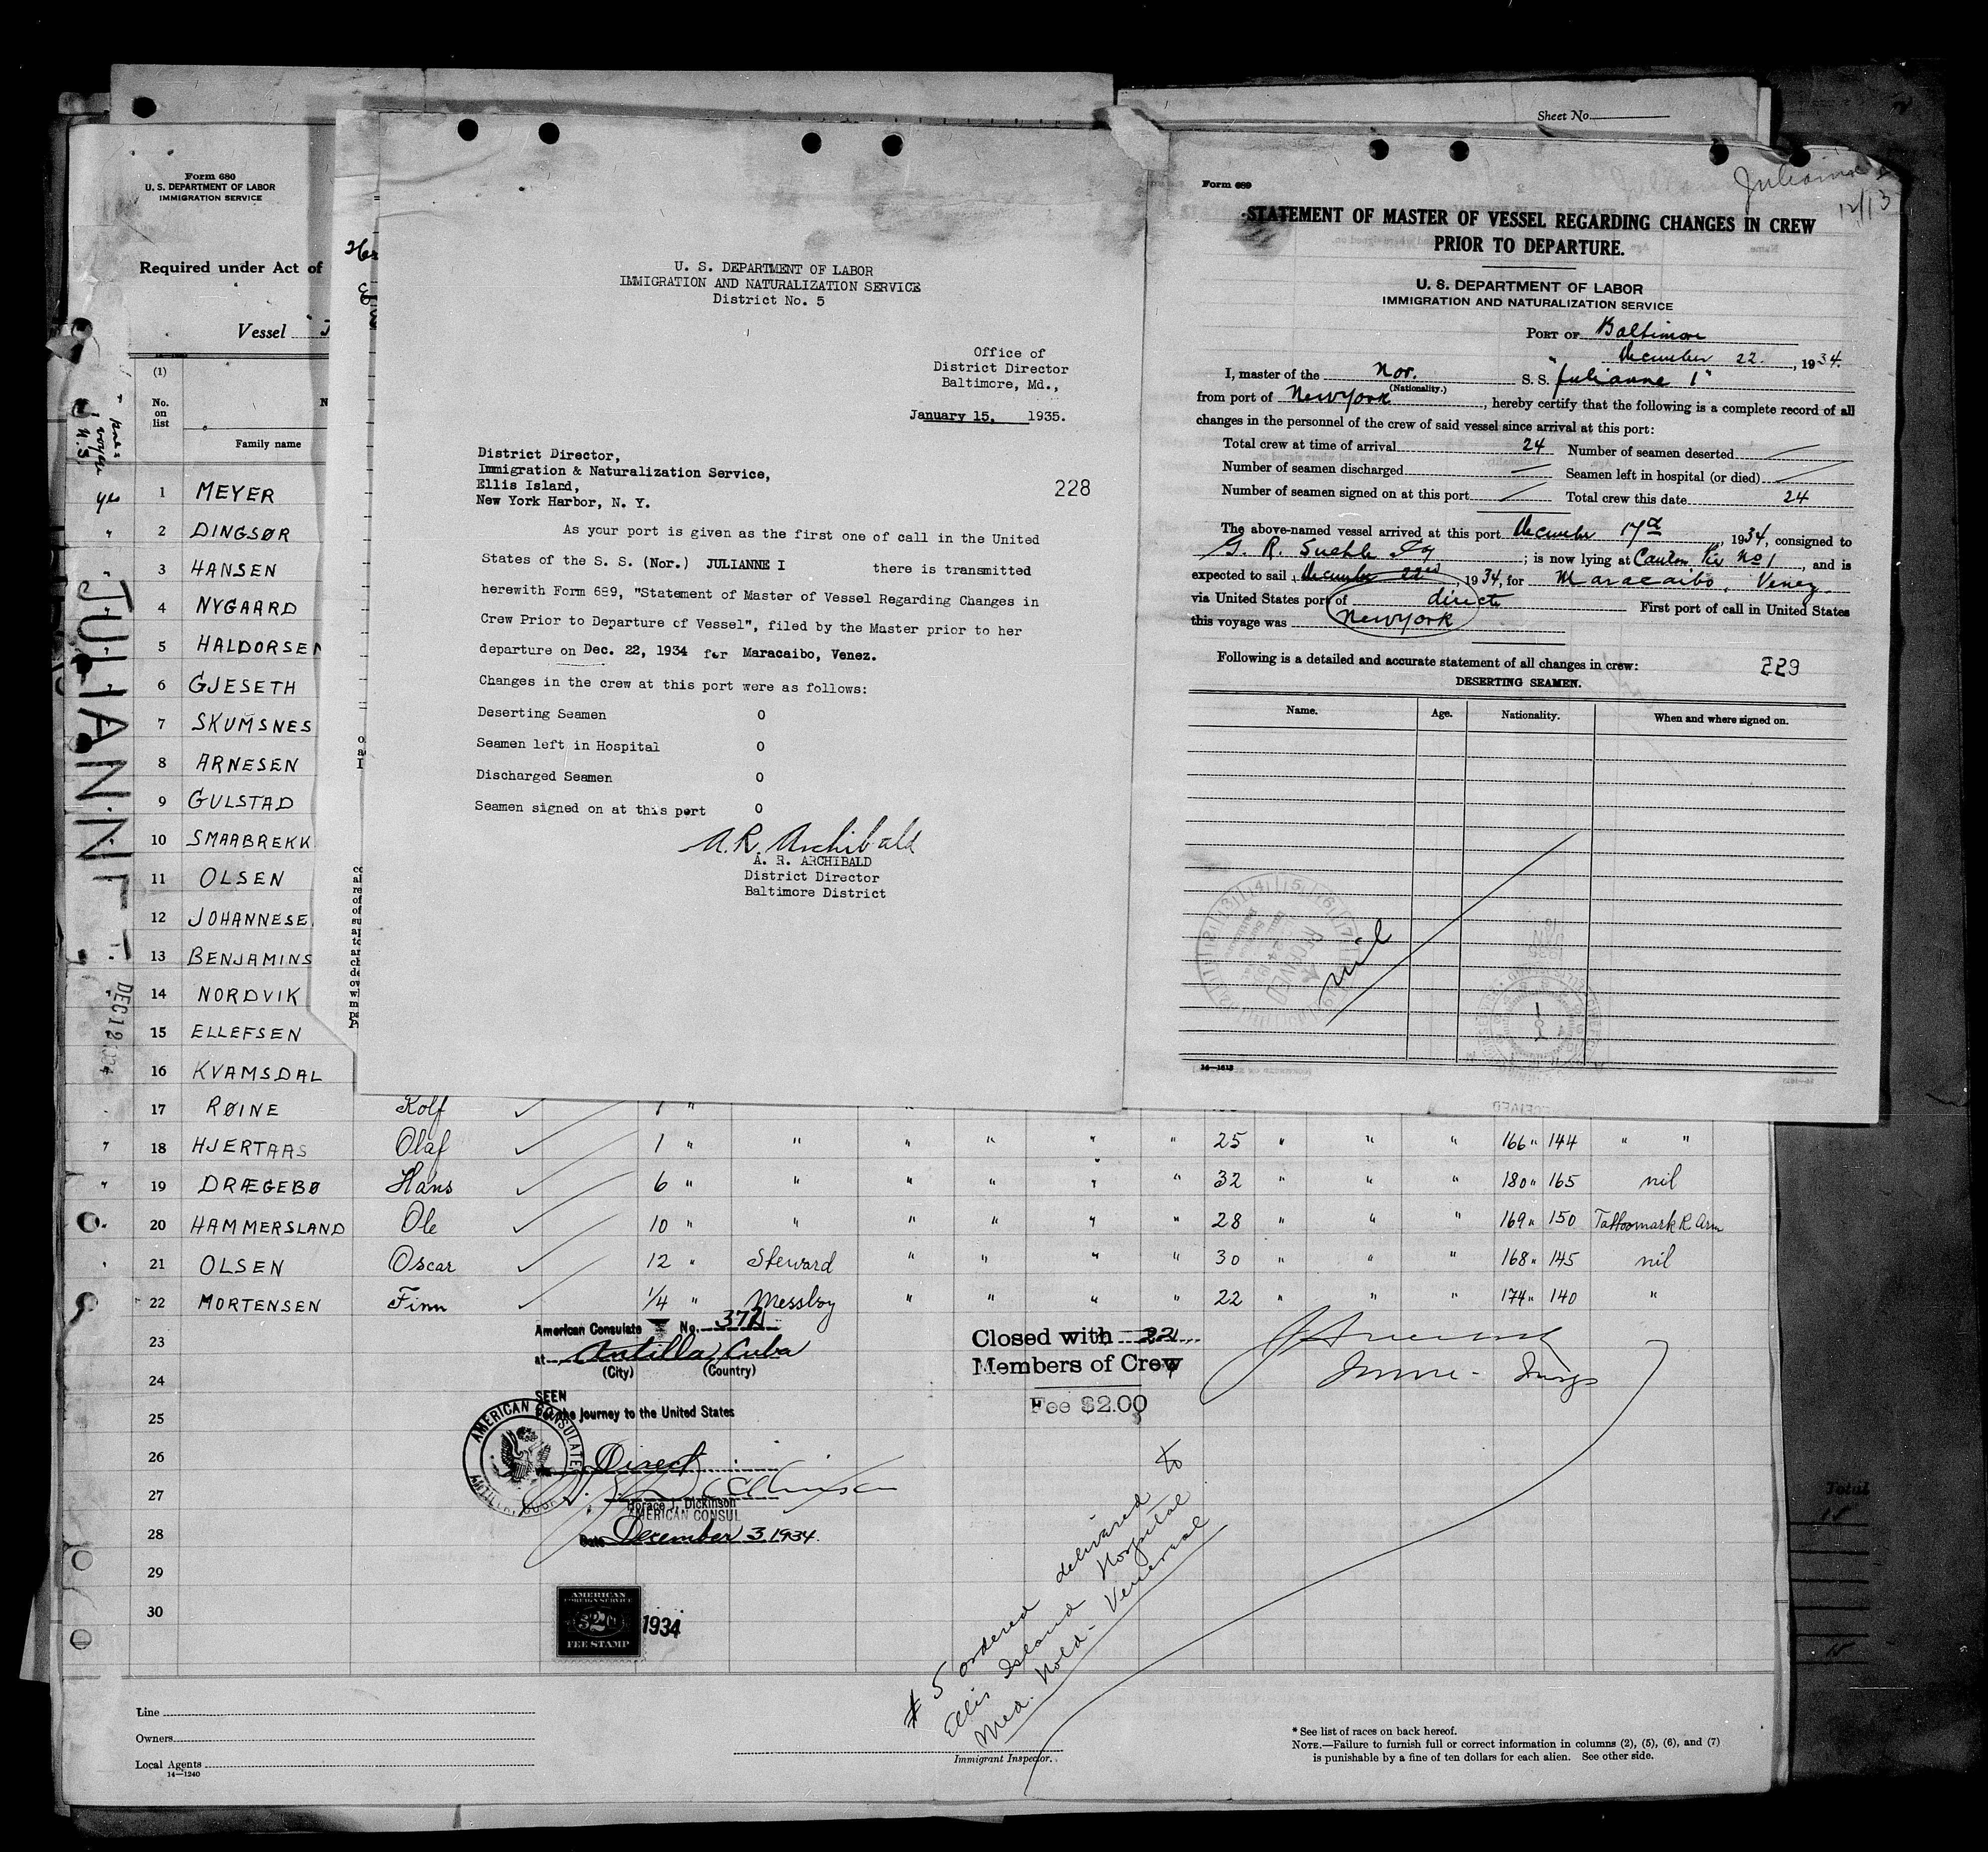 Sheet No.
Form 680
U. S. DEPARTMENT OF LABOR
IMMIGRATION SERVICE
Required under Act of
Vessel
(1)
No.
on
list
Family name
yes 1 MEYER
" 2 DINGSØR
" 3 HANSEN
4 NYGAARD
5 HALDORSEN
6 GJESETH
7 SKUMSNES
8 ARNESEN
9 GULSTAD
10 SMAABREKK
11 OLSEN
12 JOHANNESE
13 BENJAMINS
14 NORDVIK
15 ELLEFSEN
16 KVAMSDAL
17 RØINE Rolf 1 "
18 HJERTAAS Olaf 1 " " " " " " 25 " " " 166 " 144 " "
19 DRÆGEBØ Hans 6 " " " " " " 32 " " " 180 " 165 nil
20 HAMMERSLAND Ole 10 " " " " " " 28 " " " 169 " 150 Tattoomark R. Arm
21 OLSEN Oscar 12 " Steward " " " " 30 " " " 168 " 145 nil
22 MORTENSEN Finn 1/4 " Messboy " " " " 22 " " " 174 " 140 "
23
24
25
26
27
28
29
30
JULIANNE I
DEC 12 1934
American Consulate No. 372
at Antilla, Cuba
(City) (Country)
SEEN
For the journey to the United States
AMERICAN CONSULATE
ANTILLA, CUBA
Direct
Horace J. Dickinson
AMERICAN CONSUL
Date December 3, 1934.
AMERICAN
FOREIGN SERVICE
$2.00
FEE STAMP
1934
Closed with 22
Members of Crew
Fee $2.00
# 5 ordered delivered to
Ellis Island Hospital
Med. Hold - Venereal
Line
Owners
Local Agents
14—1240
Immigrant Inspector.
* See list of races on back hereof.
NOTE.—Failure to furnish full or correct information in columns (2), (5), (6), and (7)
is punishable by a fine of ten dollars for each alien. See other side.
Total
U. S. DEPARTMENT OF LABOR
IMMIGRATION AND NATURALIZATION SERVICE
District No. 5
Office of
District Director
Baltimore, Md.,
January 15, 1935.
District Director,
Immigration & Naturalization Service,
Ellis Island,
New York Harbor, N. Y.
228
As your port is given as the first one of call in the United
States of the S. S. (Nor.) JULIANNE I there is transmitted
herewith Form 689, "Statement of Master of Vessel Regarding Changes in
Crew Prior to Departure of Vessel", filed by the Master prior to her
departure on Dec. 22, 1934 for Maracaibo, Venez.
Changes in the crew at this port were as follows:
Deserting Seamen 0
Seamen left in Hospital 0
Discharged Seamen 0
Seamen signed on at this port 0
A. R. Archibald
A. R. ARCHIBALD
District Director
Baltimore District
Form 689
Julianne I
12/13
STATEMENT OF MASTER OF VESSEL REGARDING CHANGES IN CREW
PRIOR TO DEPARTURE.
U. S. DEPARTMENT OF LABOR
IMMIGRATION AND NATURALIZATION SERVICE
PORT OF Baltimore
December 22. , 1934.
I, master of the Nor. S. S. "Julianne 1"
(Nationality.)
from port of New York , hereby certify that the following is a complete record of all
changes in the personnel of the crew of said vessel since arrival at this port:
Total crew at time of arrival 24 Number of seamen deserted
Number of seamen discharged — Seamen left in hospital (or died)
Number of seamen signed on at this port Total crew this date 24
The above-named vessel arrived at this port December 17th , 1934, consigned to
; is now lying at Canton Pier No 1 , and is
expected to sail December 22nd , 1934, for Maracaibo, Venez.
via United States port of directe First port of call in United States
this voyage was New York
Following is a detailed and accurate statement of all changes in crew: 229
DESERTING SEAMEN.
Name. Age. Nationality. When and where signed on.
nil
14—1613